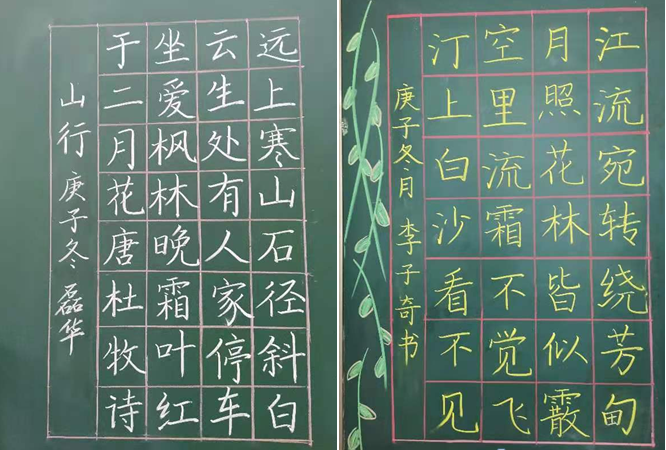 远上寒山石径斜白
云生处有人家停车
坐爱枫林晚霜叶红
于二月花唐杜牧诗
山行 庚子冬 磊华
江流宛转绕芳甸
月照花林皆似霰
空里流霜不觉飞
汀上白沙看不见
庚子冬月 李子奇书